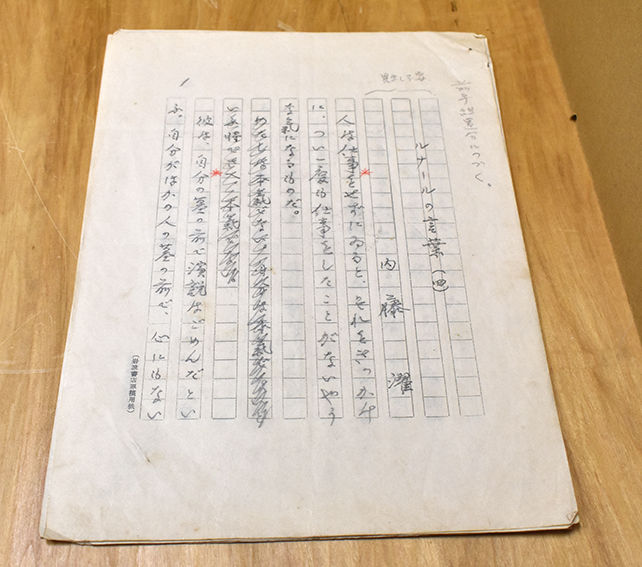 につづく。
ルナールの言葉(四)
内藤 濯
人は仕事をせずにゐると、それをきつかけ
に、つい一度も仕事をしたことがないやう
な氣になるものだ。
彼は、自分の墓の前で演説はごめんだとい
ふ。自分がほかの人の墓の前で、心にもない
1
(岩波書店原稿用紙)